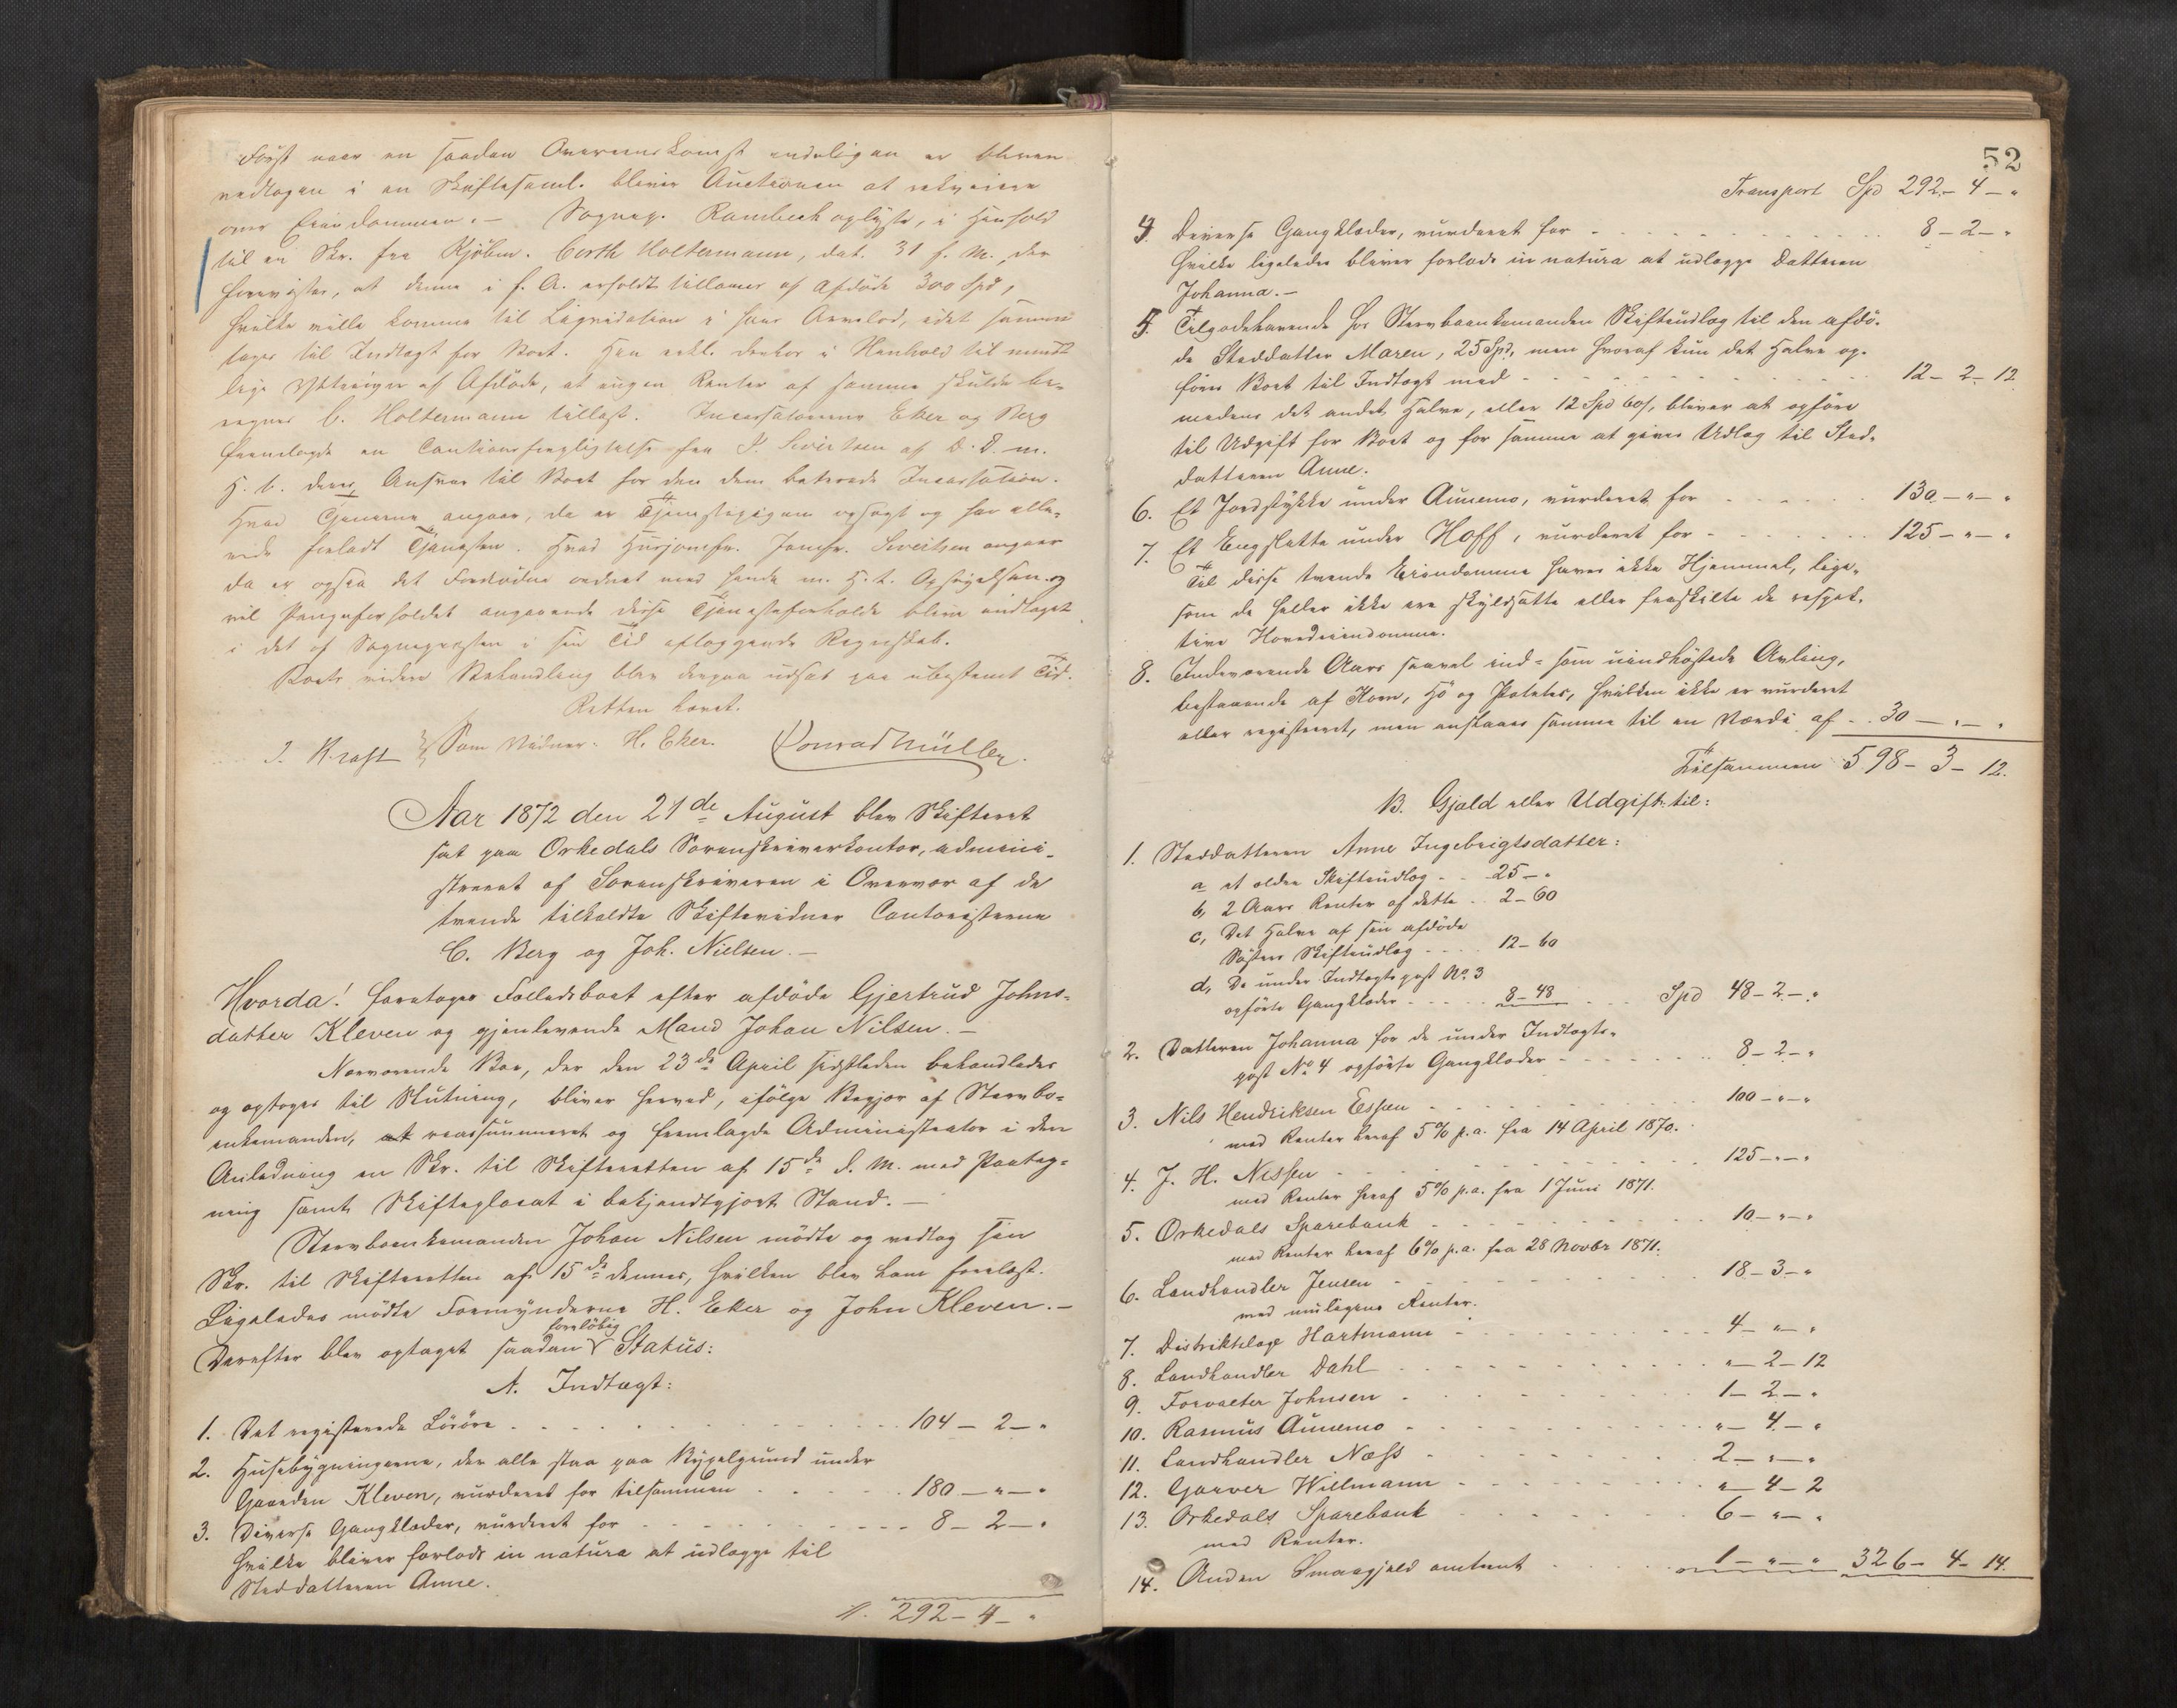 Först naar en saadan Overenskomst endeligen er bleven
vedtagen i en Skiftesaml. bliver Auctionen at rekvirere
over Eiendommen. — Sognep. Rambech oplyste, i Henhold
til en Skr. fra Kjöbm. Corth Holtermann, dat. 31 f. M., der
fremvistes, at denne i f. A. erholdt tillaans af Afdöde 300 Spd,
hvilke ville komme til Liqvidation i hans Arvelod, idet samme
tages til Indtægt for Boet. Han erkl. derhos i Henhold til mundt
lige Yttringer af Afdöde, at ingen Renter af samme skulde be-
regnes C. Holtermann tillast. Incassatorerne Eker og Berg
fremlagde en Cautionsforpligtelse fra P. Sivertsen af D. D. m.
H. t. deres Ansvar til Boet for den dem betroede Incassation.
Hvad Tjenerne angaar, da er Tjenestepigen opsagt og har alle-
rede forladt Tjenesten. Hvad Husjomfr. Jomfr. Sivertsen angaar
da er ogsaa det Fornödne ordnet med hende m. H. t. Opsigelsen og
vil Pengeforholdet angaaende disse Tjenesteforholde blive indtaget
i det af Sognepresten i sin Tid aflæggende Regnskab.
Boets videre Behandling blev derpaa udsat paa ubestemt Tid.
Retten hævet.
J. Kraft Som Vidner: H. Eker. Conrad Müller.
Aar 1872 den 21de August blev Skifteret
sat paa Orkedals Sorenskriverkontor, admini-
streret af Sorenskriveren i Overvær af de
tvende tilkaldte Skiftevidner Contoristerne
C. Berg og Joh. Nielsen. —
Hvorda! foretoges Fællesboet efter afdöde Gjertrud Johns-
datter Kleven og gjenlevende Mand Johan Nilsen. —
Nærværende Boe, der den 23de April sidstleden behandledes
og optoges til Slutning, bliver herved, ifölge Begjær af Stervbo-
enkemanden, at reassummeret og fremlagde Administrator i den
Anledning en Skr. til Skifteretten af 15de d. M. med Paateg-
ning samt Skifteplacat i bekjendtgjort Stand. —
Stervboenkemanden Johan Nilsen mödte og vedtog sin
Skr. til Skifteretten af 15de dennes, hvilken blev ham forelæst.
Ligeledes mödte Formynderne H. Eker og John Kleven. —
foreløbig
Derefter blev optaget saadan Status:
A. Indtægt:
1. Det registerede Lösöre 104 — 2 — "
2. Husebygningerne, der alle staa paa Bygselgrund under
Gaarden Kleven, vurderet for tilsammen 180 — " — "
3. Diverse Gangklæder, vurderet for 8 — 2 — "
hvilke bliver forlods in natura at udlægge til
Steddatteren Anne.
292 — 4 — "
52
Transport Spd 292 — 4 — "
4. Diverse Gangklæder, vurderet for 8 — 2 — "
hvilke ligeledes bliver forlods in natura at udlægge Datteren
Johanna. —
5. Tilgodehavende hos Stervboenkemanden Skifteudlæg til den afdö-
de Steddatter Maren, 25 Spd, men hvoraf kun det Halve op-
föres Boet til Indtægt med 12 — 2 — 12
medens det andet Halve, eller 12 Spd 60 s, bliver at opföre
til Udgift for Boet og for samme at gives Udlæg til Sted-
datteren Anne.
6. Et Jordstykke under Aunemo, vurderet for 130 — " — "
7. Et Engslætte under Hoff, vurderet for 125 — " — "
Til disse tvende Eiendomme haves ikke Hjemmel, lige-
som de heller ikke ere skyldsatte eller fraskilte de respek-
tive Hovedeiendomme.
8. Indeværende Aars saavel ind- som uindhöstede Avling,
bestaaende af Korn, Hö og Poteter, hvilken ikke er vurderet
eller registreret, men ansaaes samme til en Værdi af 30 — " — "
Tilsammen 598 — 3 — 12.
B. Gjæld eller Udgift til:
1. Steddatteren Anne Ingebrigtsdatter:
a et ældre Skifteudlæg 25 — "
b, 2 Aars Renter af dette 2 — 60
c, Det Halve af sin afdöde
Sösters Skifteudlæg 12 — 60
d, De under Indtægts post No. 3
opförte Gangklæder 8 — 48 Spd 48 — 2 — "
2. Datteren Johanna for de under Indtægts-
post No 4 opförte Gangklæder 8 — 2 — "
3. Nils Hendriksen Essæn 100 — " — "
med Renter heraf 5 % p. a. fra 14 April 1870.
4. J. H. Nissen 125 — " — "
med Renter heraf 5 % p. a. fra 1 Juni 1871.
5. Orkedals Sparebank 10 — " — "
med Renter heraf 6 % p. a. fra 28 Novbr 1871.
6. Landhandler Jensen 18 — 3 — "
med muligens Renter.
7. Distriktslæge Hartmann 4 — " — "
8. Landhandler Dahl " — 2 — 12
9. Forvalter Johnsen 1 — 2 — "
10. Rasmus Aunemo " — 4 — "
11. Landhandler Næss 2 — " — "
12. Garver Willmann " — 4 — 2
13. Orkedals Sparebank 6 — " — "
med Renter.
14. Anden Smaagjæld omtrent 1 — " — " 326 — 4 — 14.